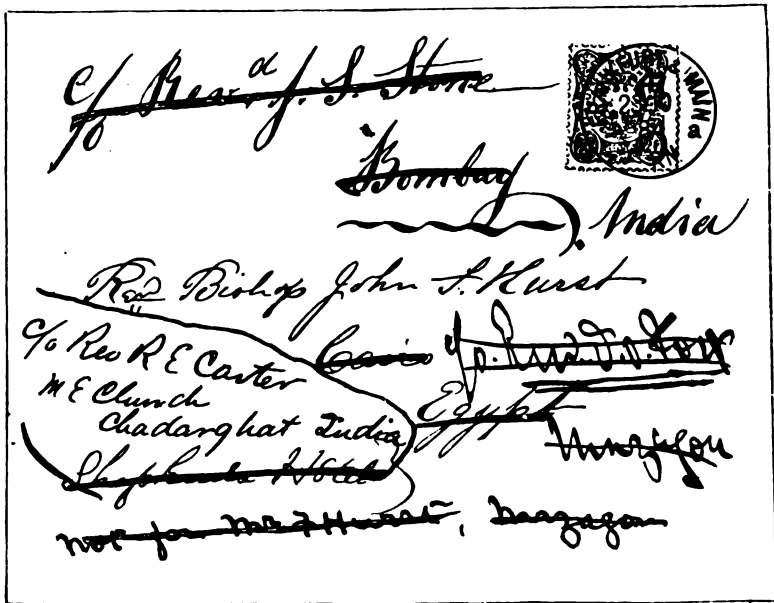 c/o Revd J. S. Stone
Bombay
India
Revd Bishop John F. Hurst
c/o Rev R E Carter
M E Church
Chadarghat India
Cairo
c/o. Revd. D. O. Fox
Egypt
Shepheards Hotel
not for Mr J Hurst, Mazagon
FRANKFURT MAIN
a